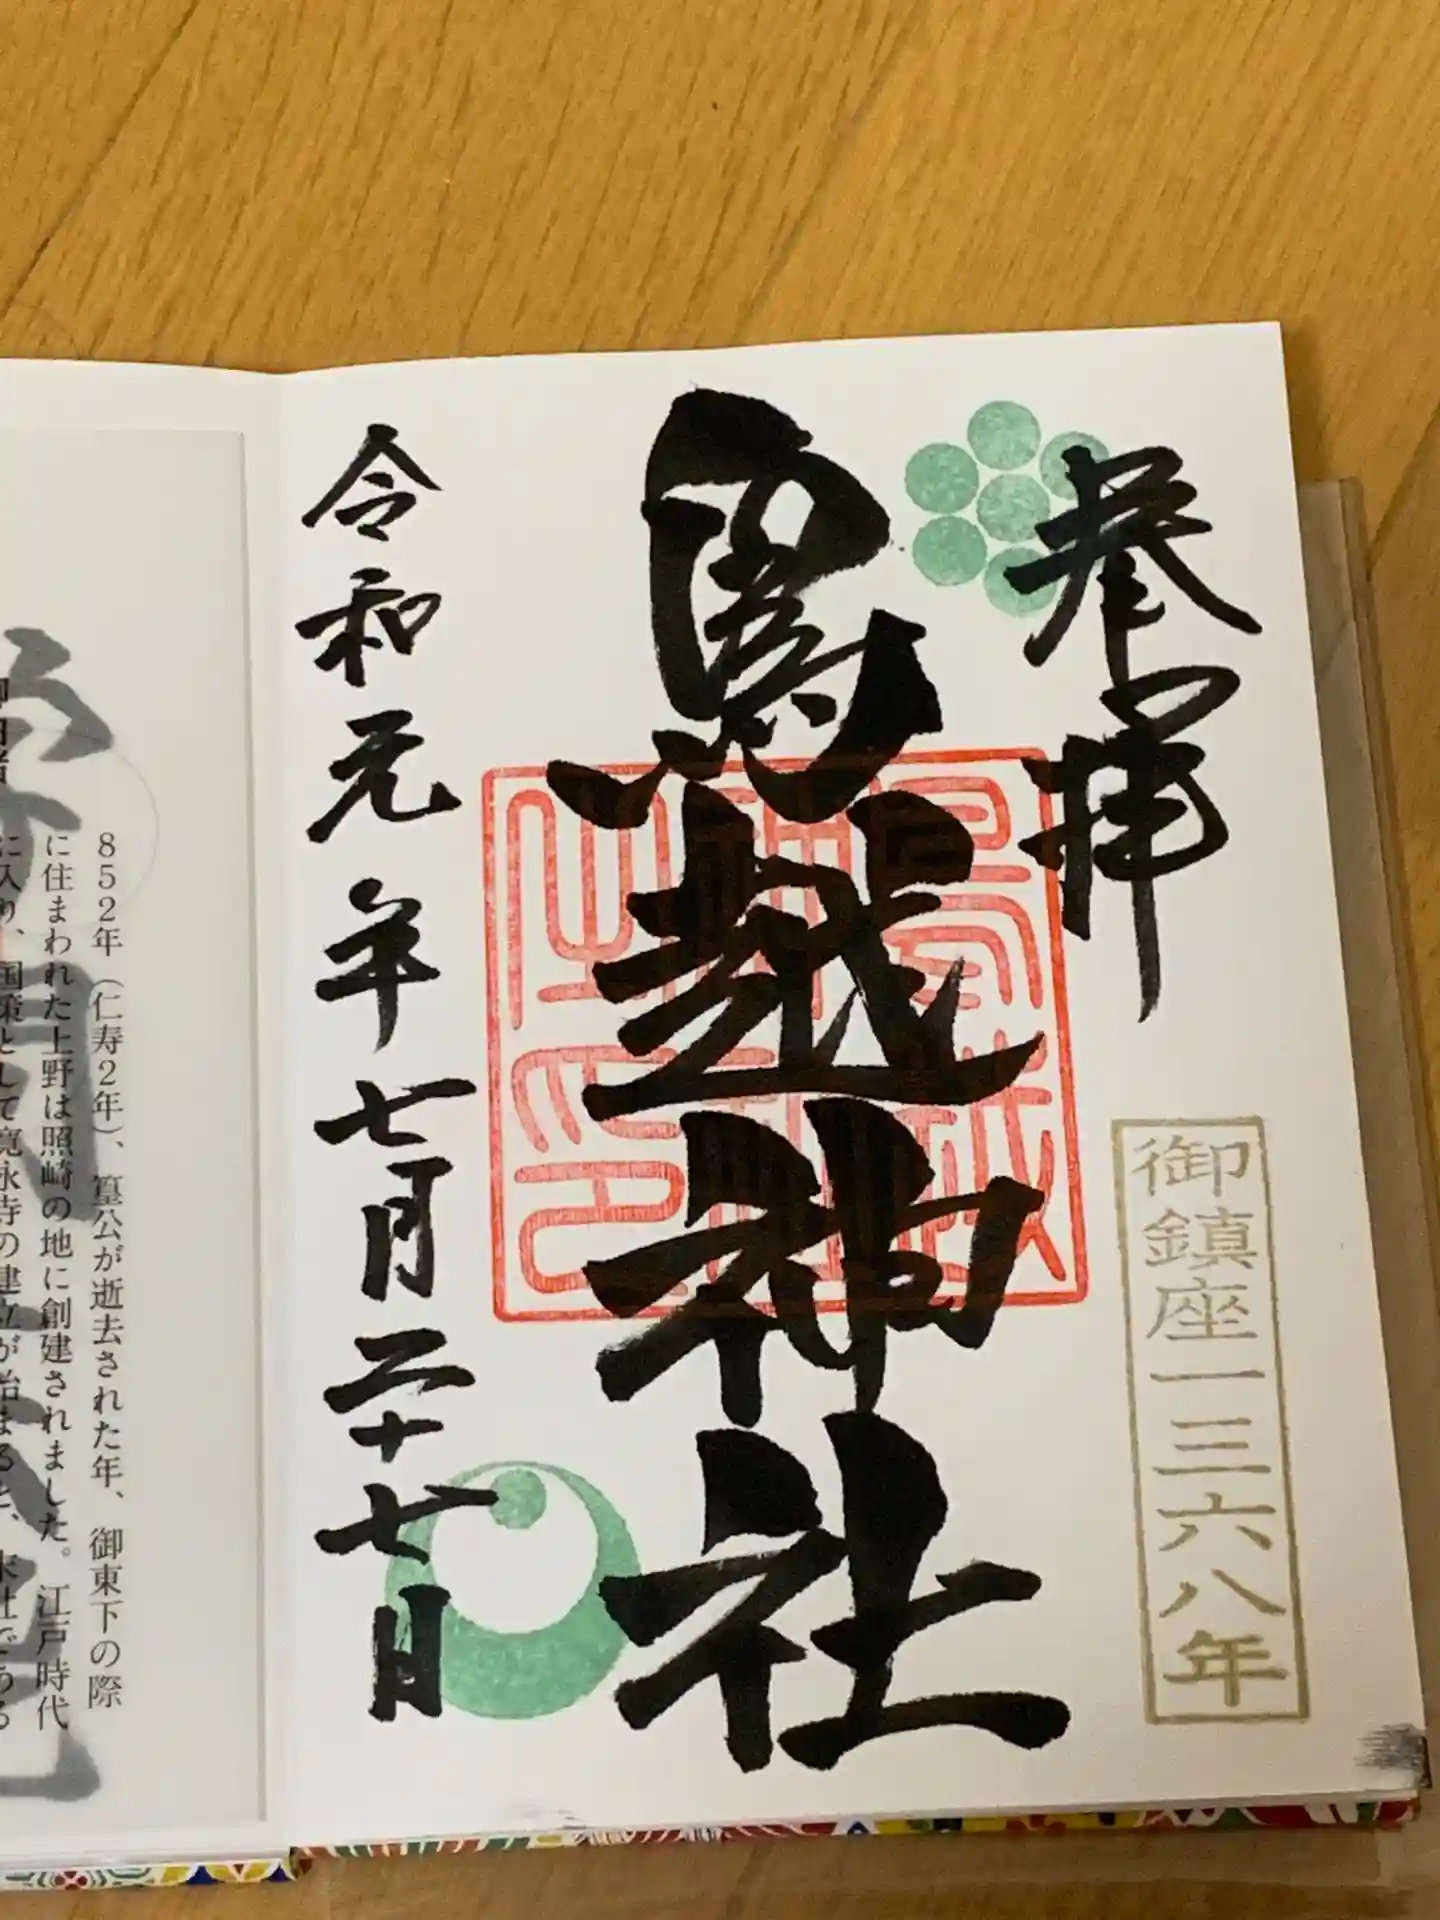 奉拝
御鎮座一三六八年
鳥越神社
令和元年七月二十七日
852年(仁寿2年)、篁公が逝去された年、御東下の際
に住まわれた上野は照崎の地に創建されました。江戸時代
に入り、国策として寛永寺の建立が始まると、末社である